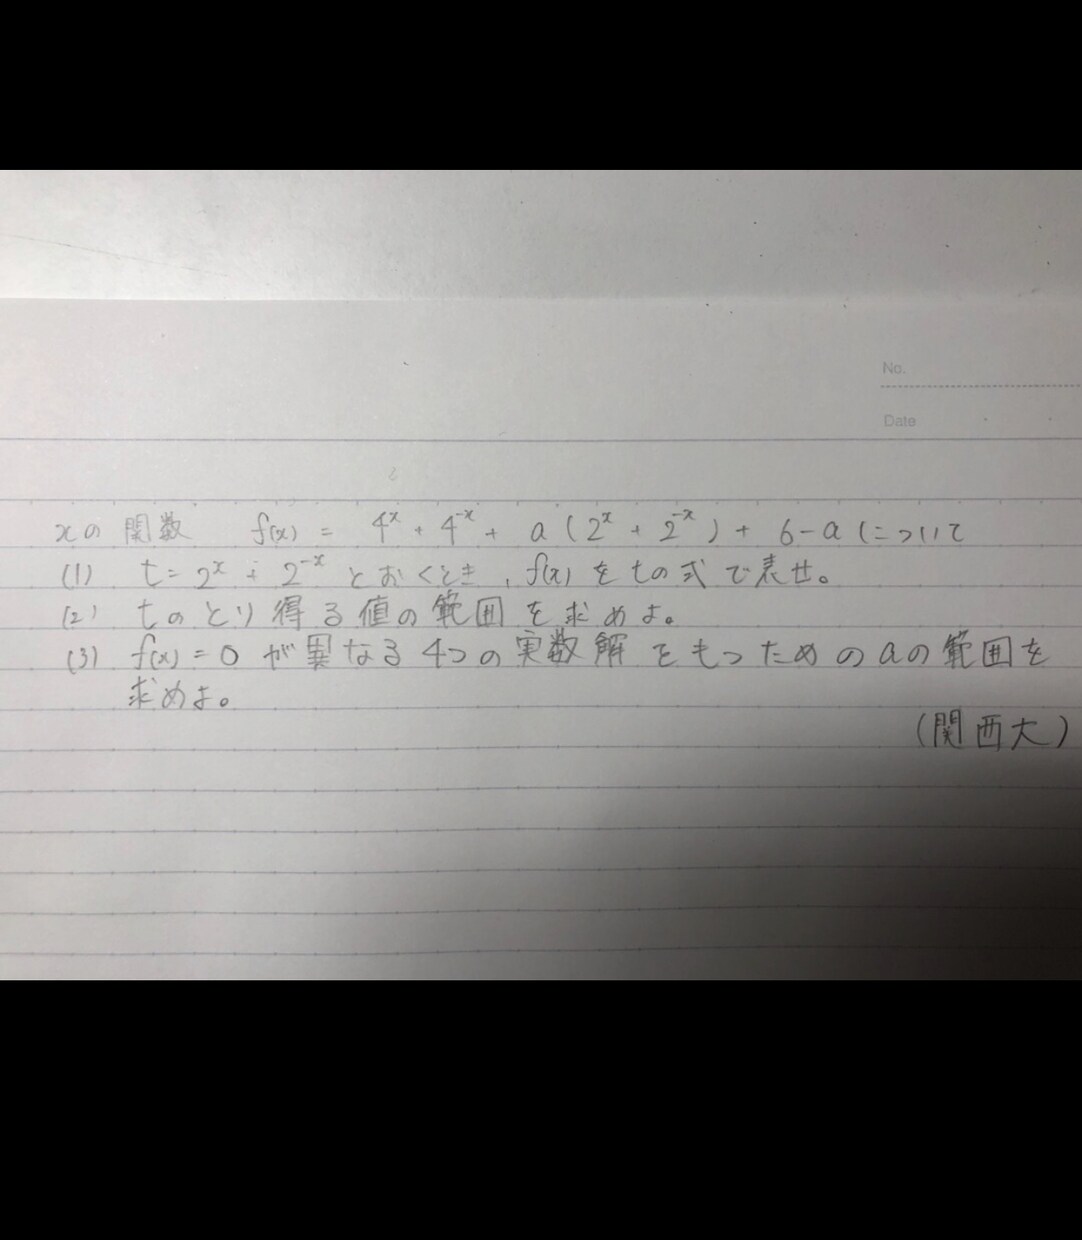 No.
Date
xの関数 f(x) = 4^x + 4^-x + a(2^x + 2^-x) + 6-a について
(1) t=2^x+2^-x とおくとき, f(x)をtの式で表せ。
(2) tのとり得る値の範囲を求めよ。
(3) f(x)=0が異なる4つの実数解をもつためのaの範囲を
求めよ。
(関西大)